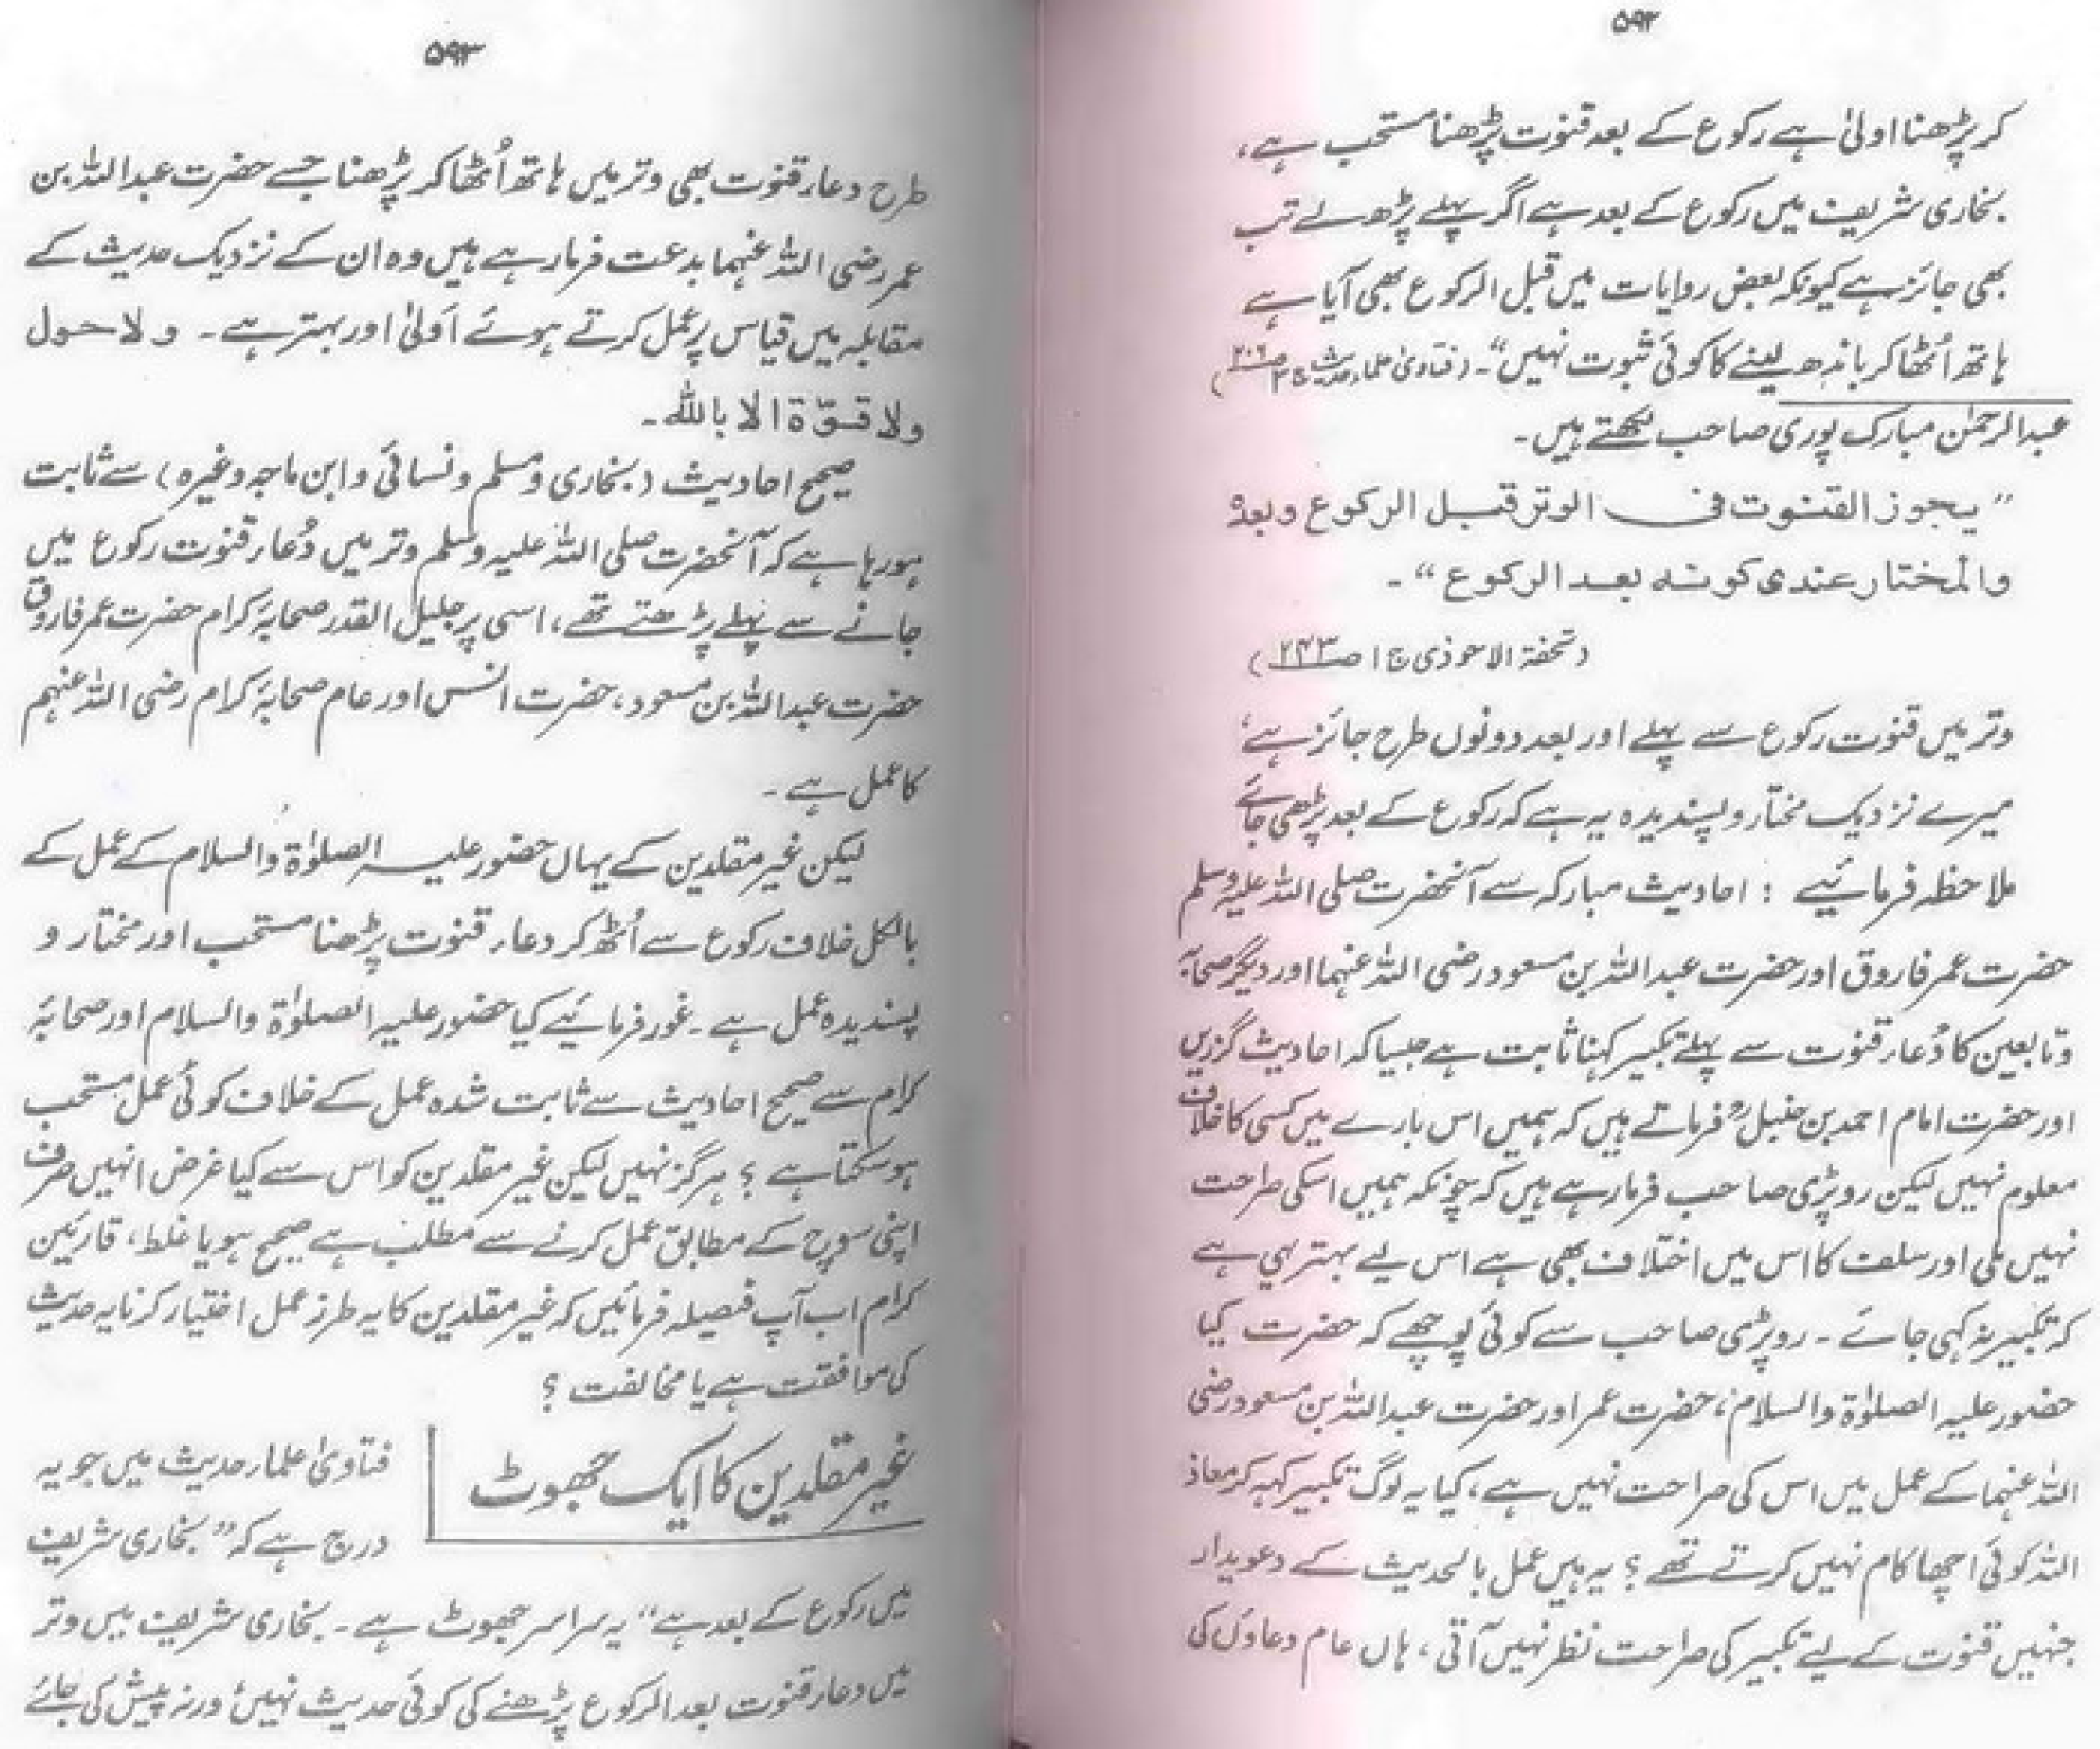 ۵۹۲
کر پڑھنا اولیٰ ہے رکوع کے بعد قنوت پڑھنا مستحب ہے،
بخاری شریف میں رکوع کے بعد ہے اگر پہلے پڑھ لے تب
بھی جائز ہے کیونکہ بعض روایات میں قبل الرکوع بھی آیا ہے
ہاتھ اُٹھا کر باندھ لینے کا کوئی ثبوت نہیں“۔ (فتاویٰ علماء حدیث ج۳ ص۲۰۶)
عبدالرحمٰن مبارک پوری صاحب لکھتے ہیں۔
”یجوز القنوت فی الوتر قبل الرکوع وبعدہ
والمختار عندی کونہ بعد الرکوع“۔
(تحفۃ الاحوذی ج۱ ص۲۴۳)
وتر میں قنوت رکوع سے پہلے اور بعد دونوں طرح جائز ہے،
میرے نزدیک مختار و پسندیدہ یہ ہے کہ رکوع کے بعد پڑھی جائے
ملاحظہ فرمائیے : احادیث مبارکہ سے آنحضرت صلی اللہ علیہ وسلم
حضرت عمر فاروق اور حضرت عبداللہ بن مسعود رضی اللہ عنہما اور دیگر صحابہ
و تابعین کا دُعاء قنوت سے پہلے تکبیر کہنا ثابت ہے جیسا کہ احادیث گزریں
اور حضرت امام احمد بن حنبلؒ فرماتے ہیں کہ ہمیں اس بارے میں کسی کا خلاف
معلوم نہیں لیکن روپڑی صاحب فرما رہے ہیں کہ چونکہ ہمیں اسکی صراحت
نہیں ملی اور سلف کا اس میں اختلاف بھی ہے اس لیے بہتر یہی ہے
کہ تکبیر نہ کہی جائے ۔ روپڑی صاحب سے کوئی پوچھے کہ حضرت کیا
حضور علیہ الصلوٰۃ والسلام، حضرت عمر اور حضرت عبداللہ بن مسعود رضی
اللہ عنہما کے عمل میں اس کی صراحت نہیں ہے، کیا یہ لوگ تکبیر کہہ کر معاذ
اللہ کوئی اچھا کام نہیں کرتے تھے ؟ یہ ہیں عمل بالحدیث کے دعویدار
جنہیں قنوت کے لیے تکبیر کی صراحت نظر نہیں آتی ، ہاں عام دعاؤں کی
۵۹۳
طرح دعاء قنوت بھی وتر میں ہاتھ اُٹھا کر پڑھنا جسے حضرت عبداللہ بن
عمر رضی اللہ عنہما بدعت فرما رہے ہیں وہ ان کے نزدیک حدیث کے
مقابلہ میں قیاس پر عمل کرتے ہوئے اَولیٰ اور بہتر ہے ۔ ولا حول
ولا قوّۃ الا باللہ۔
صحیح احادیث (بخاری و مسلم و نسائی و ابن ماجہ وغیرہ) سے ثابت
ہو رہا ہے کہ آنحضرت صلی اللہ علیہ وسلم وتر میں دُعاء قنوت رکوع میں
جانے سے پہلے پڑھتے تھے، اسی پر جلیل القدر صحابۂ کرام حضرت عمر فاروق
حضرت عبداللہ بن مسعود، حضرت انس اور عام صحابۂ کرام رضی اللہ عنہم
کا عمل ہے ۔
لیکن غیر مقلدین کے یہاں حضور علیہ الصلوٰۃ والسلام کے عمل کے
بالکل خلاف رکوع سے اُٹھ کر دعاء قنوت پڑھنا مستحب اور مختار و
پسندیدہ عمل ہے ۔ غور فرمائیے کیا حضور علیہ الصلوٰۃ والسلام اور صحابۂ
کرام سے صحیح احادیث سے ثابت شدہ عمل کے خلاف کوئی عمل مستحب
ہو سکتا ہے ؟ ہرگز نہیں لیکن غیر مقلدین کو اس سے کیا غرض انہیں صرف
اپنی سوچ کے مطابق عمل کرنے سے مطلب ہے صحیح ہو یا غلط، قارئین
کرام اب آپ فیصلہ فرمائیں کہ غیر مقلدین کا یہ طرز عمل اختیار کرنا یہ حدیث
کی موافقت ہے یا مخالفت ؟
غیر مقلدین کا ایک جھوٹ
فتاویٰ علماء حدیث میں جو یہ
درج ہے کہ ”بخاری شریف
میں رکوع کے بعد ہے“ یہ سراسر جھوٹ ہے ۔ بخاری شریف میں وتر
میں دعاء قنوت بعد الرکوع پڑھنے کی کوئی حدیث نہیں، ورنہ پیش کی جائے